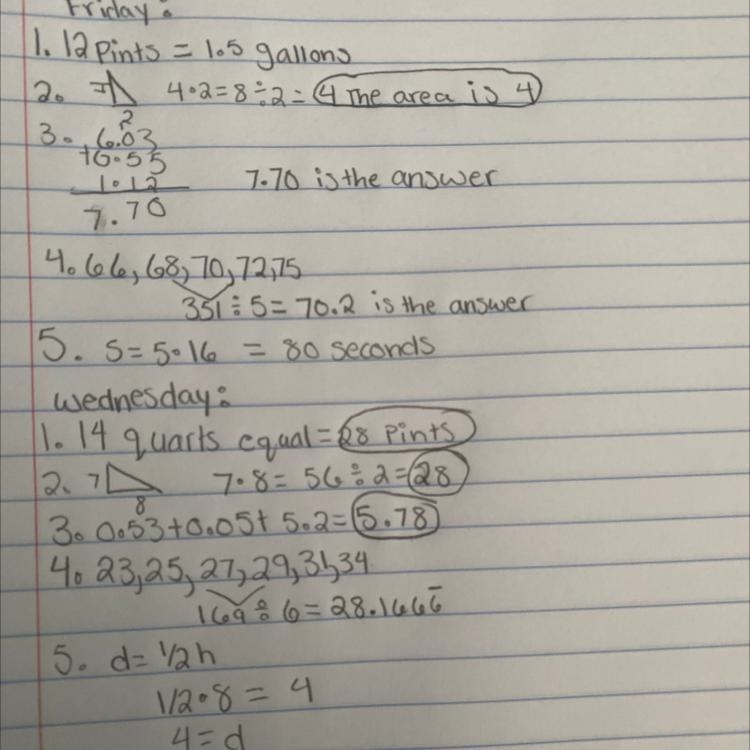 Friday:
1. 12 pints = 1.5 gallons
2. 4·2=8÷2= 4 The area is 4
2
3. 6.03
+0.55
1.12 7.70 is the answer
7.70
4. 66, 68, 70, 72, 75
351 ÷ 5 = 70.2 is the answer
5. S = 5·16 = 80 seconds
Wednesday:
1. 14 quarts equal = 28 pints
2. 7 7·8= 56÷2=28
8
3. 0.53+0.05+ 5.2=5.78
4. 23, 25, 27, 29, 31, 34
169÷6 = 28.1666̅
5. d= 1/2 h
1/2·8 = 4
4=d